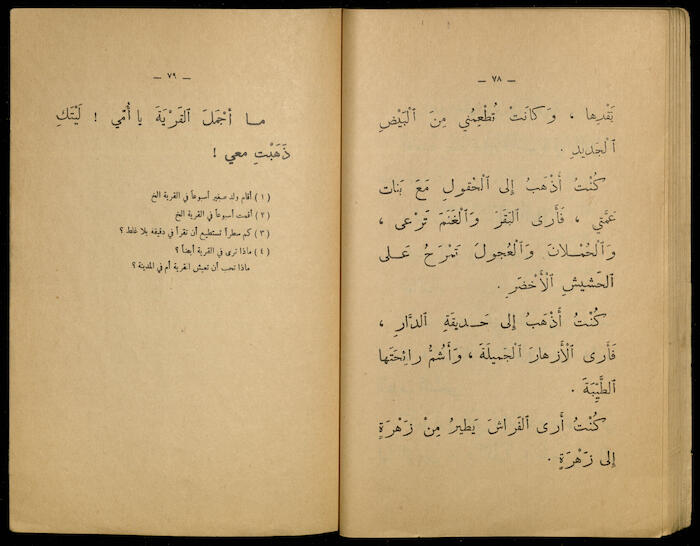 — ٧٨ —
بَقَدِها ، وَكانَتْ تُطْعِمُني مِنَ ٱلْبَيْضِ
ٱلْجَديدِ .
كُنْتُ أَذْهَبُ إِلى ٱلْحُقولِ مَعَ بَناتِ
عَمَّتي ، فَأَرى ٱلْبَقَرَ وَٱلْغَنَمَ تَرْعى ،
وَٱلْحُمْلانَ وَٱلْعُجولَ تَمْرَحُ عَلى
ٱلْحَشيشِ ٱلْأَخْضَرِ .
كُنْتُ أَذْهَبُ إِلى حَديقَةِ ٱلدَّارِ ،
فَأَرى ٱلْأَزْهارَ ٱلْجَميلَةَ ، وَأَشُمُّ رائِحَتَها
ٱلطَّيِّبَةَ .
كُنْتُ أَرى ٱلْفَراشَ يَطيرُ مِنْ زَهْرَةٍ
إِلى زَهْرَةٍ .
— ٧٩ —
ما أَجْمَلَ ٱلْقَرْيَةَ يا أُمّي ! لَيْتَكِ
ذَهَبْتِ مَعي !
( ١ ) أقام ولد صغير أسبوعاً في القرية الخ
( ٢ ) أقمت أسبوعاً في القرية الخ
( ٣ ) كم سطراً تستطيع أن تقرأ في دقيقه بلا غلط ؟
( ٤ ) ماذا ترى في القرية أيضاً ؟
ماذا تحب أن تعيش القرية أم في المدينة ؟